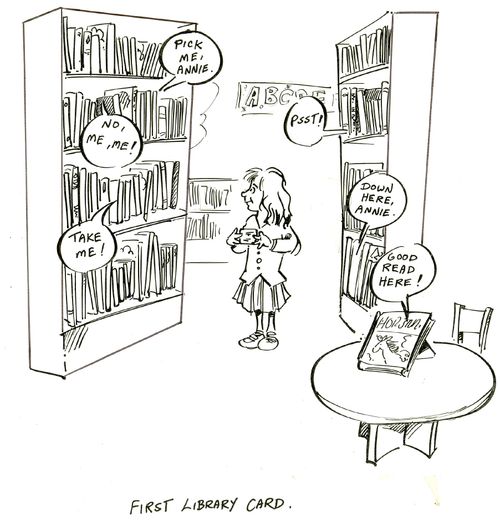 PICK
ME,
ANNIE.
NO,
ME, ME!
TAKE
ME!
ABCDE
PSST!
DOWN
HERE,
ANNIE.
GOOD
READ
HERE!
FIRST LIBRARY CARD.